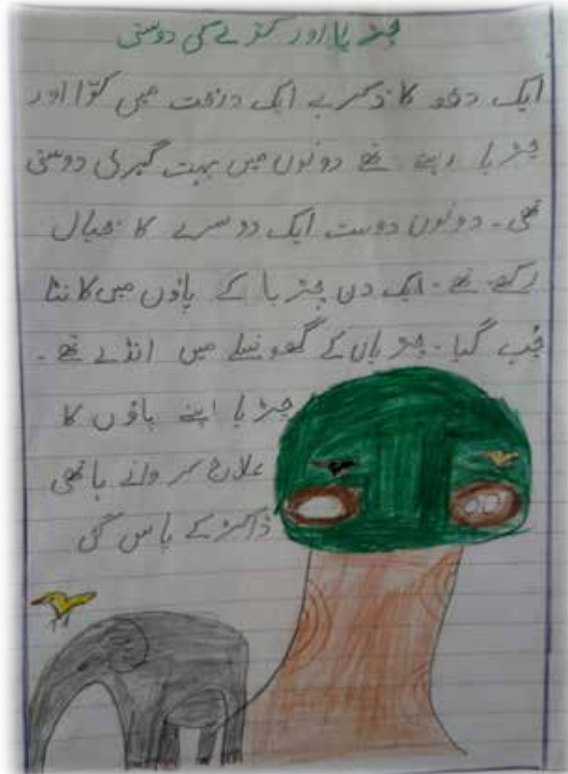 چڑیا اور کوّے کی دوستی
ایک دفعہ کا ذکر ہے ایک درخت میں کوّا اور
چڑیا رہتے تھے دونوں میں بہت گہری دوستی
تھی۔ دونوں دوست ایک دوسرے کا خیال
رکھتے تھے۔ ایک دن چڑیا کے پاؤں میں کانٹا
چُب گیا۔ چڑیاں کے گھونسلے میں انڈے تھے۔
چڑیا اپنے پاؤں کا
علاج کروانے ہاتھی
ڈاکٹر کے پاس گئی